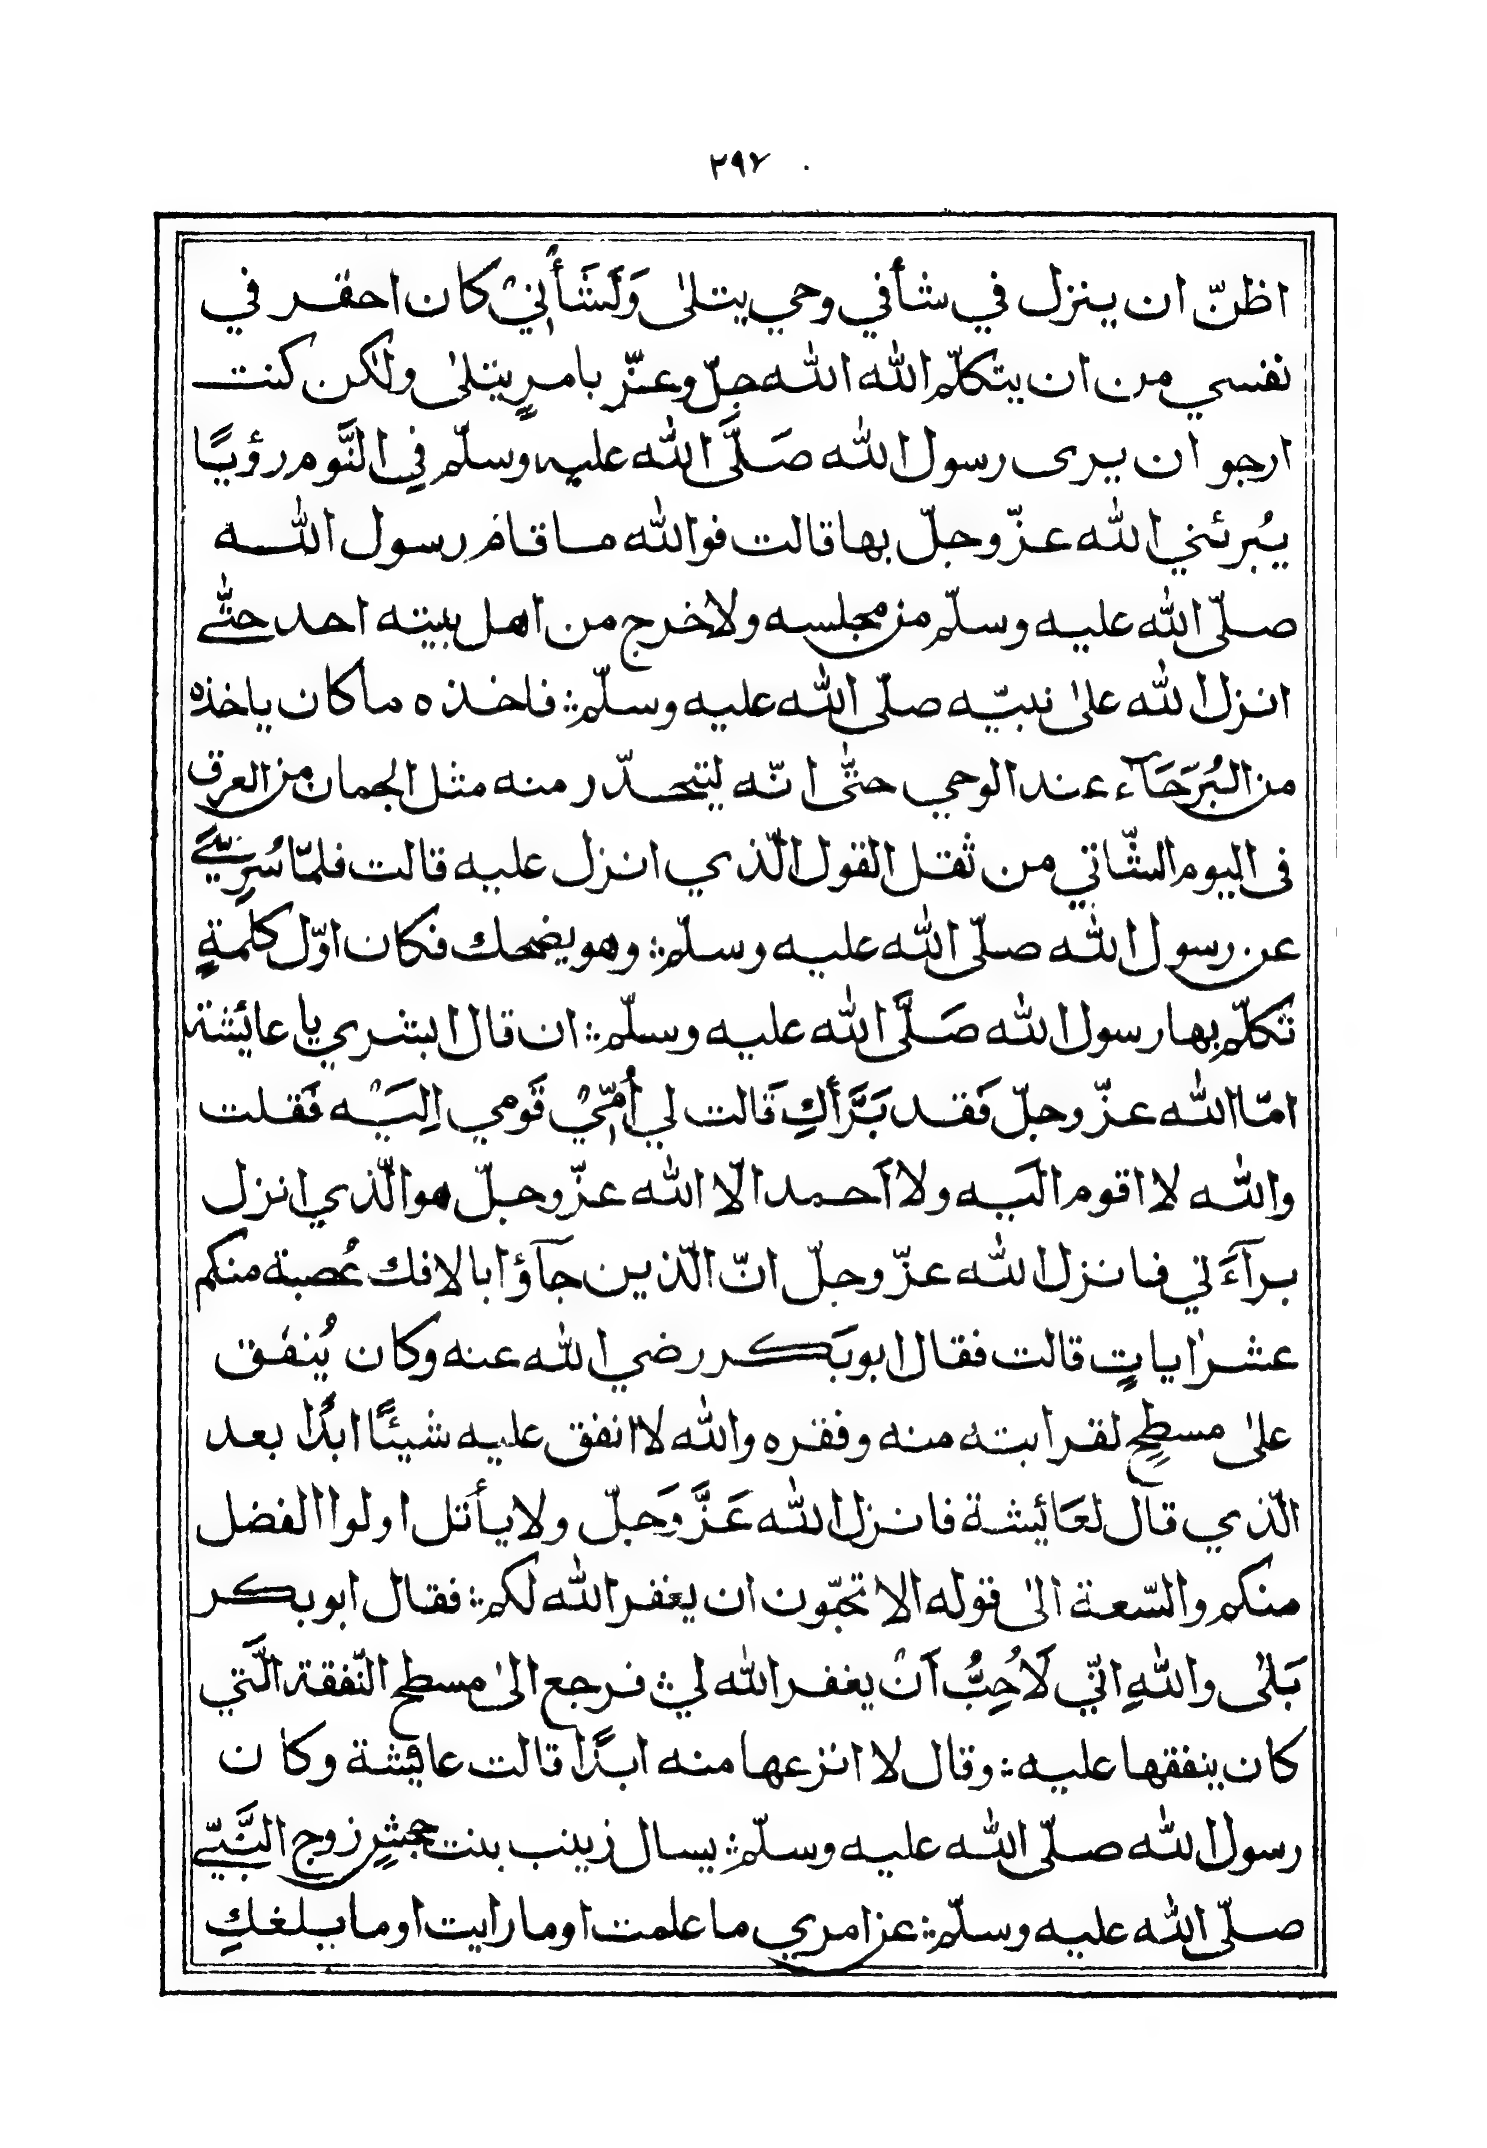 ٢٩٧
اظنّ ان ينزل في شأني وحي يتلىٰ وَلَشَأْنِيْ كان احقر في
نفسي من ان يتكلّم اللّٰه اللّٰه جلّ وعزّ بامرٍ يتلىٰ ولٰكن كنت
ارجو ان يرى رسول اللّٰه صَلَّى اللّٰه عليه وسلّم فِي النَّوم رؤيًا
يُبرئني اللّٰه عزّ وجلّ بها قالت فواللّٰه ما قام رسول اللّٰه
صلّى اللّٰه عليه وسلّم من مجلسه ولا خرج من اهل بيته احد حتّٰى
انزل اللّٰه علىٰ نبيّه صلّى اللّٰه عليه وسلّم فاخذه ما كان ياخذه
من البُرَحَآء عند الوحي حتّٰى انّه ليتحدّر منه مثل الجمان من العرق
فى اليوم الشّاتي من ثقل القول الّذي انزل عليه قالت فلمّا سُرِيَّ
عن رسول اللّٰه صلّى اللّٰه عليه وسلّم وهو يضحك فكان اوّل كلمةٍ
تكلّم بها رسول اللّٰه صَلَّى اللّٰه عليه وسلّم ان قال ابشري يا عائشة
امّا اللّٰه عزّ وجلّ فَقد بَرَّأَكِ قَالت لي أُمِّيْ قَومي اِلَيْه فَقلت
واللّٰه لا اقوم الَيه ولا أَحمد الّا اللّٰه عزّ وجلّ هو الّذي انزل
برآءَتي فانزل اللّٰه عزّ وجلّ انّ الّذين جآؤا بالافك عُصبة منكم
عشر اٰياتٍ قالت فقال ابوبَكر رضي اللّٰه عنه وكان يُنفق
علىٰ مسطحٍ لقرابته منه وفقره واللّٰه لا انفق عليه شيئًا ابدًا بعد
الّذي قال لعَائِشة فانزل اللّٰه عَزَّ وَجلّ ولا يأتل اولوا الفضل
منكم والسّعة الىٰ قوله الا تحبّون ان يغفر اللّٰه لكم فقال ابوبكر
بَلىٰ واللّٰهِ انّي لَأُحِبُّ اَنْ يغفر اللّٰه لي فرجع الىٰ مسطح النّفقة الَّتي
كان ينفقها عليه وقال لا انزعها منه ابدًا قالت عائشة وكان
رسول اللّٰه صلّى اللّٰه عليه وسلّم يسال زينب بنت جحشٍ زوج النَّبيّ
صلّى اللّٰه عليه وسلّم عن امري ما علمت او ما رايت او ما بلغكِ